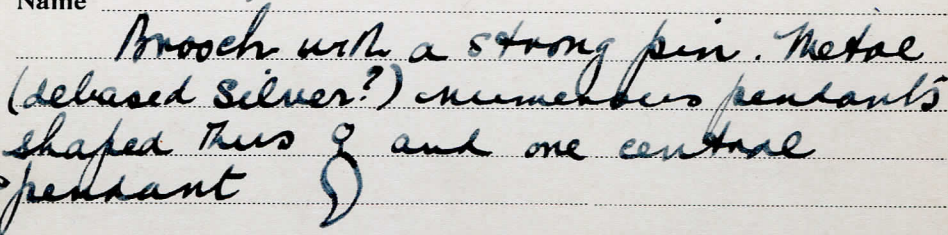 Name
Brooch with a strong pin. Metal
(debased Silver?) numerous pendants
shaped thus and one central
pendant